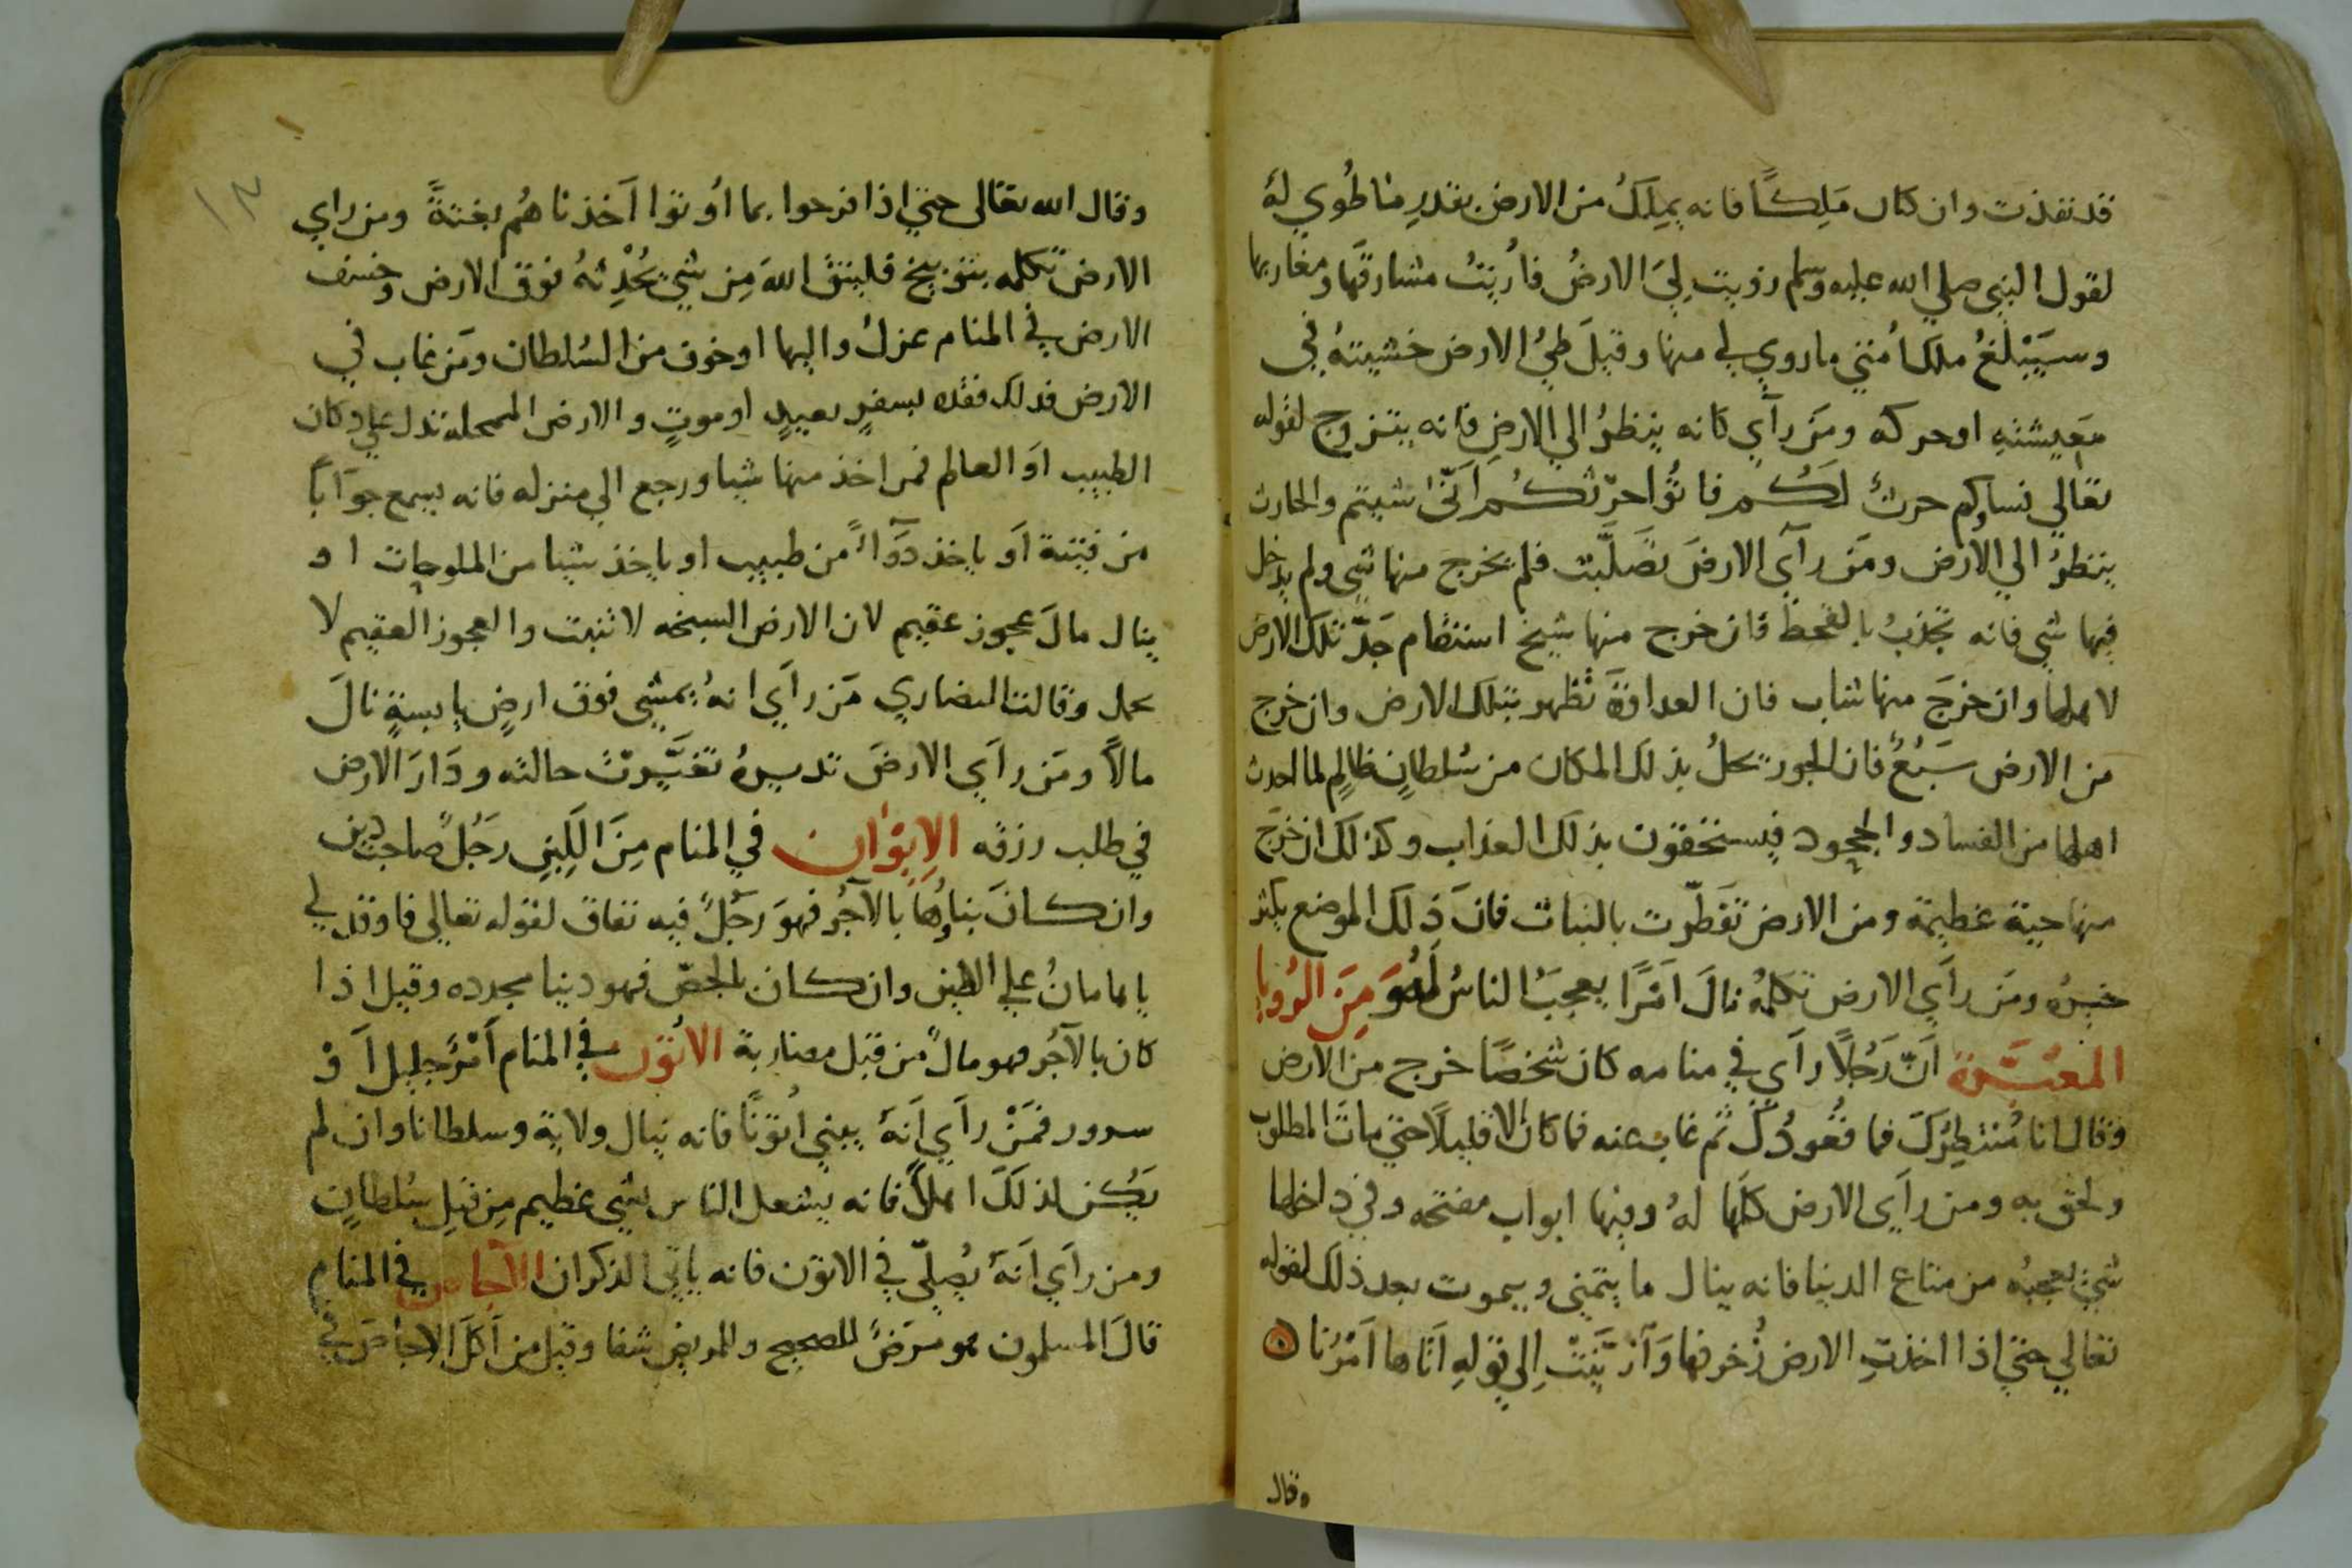 قد نفذت وان كان مَلِكًا فانه يملِكُ من الارض بقدرِ ما طُوي لهُ
لقول النبي صلي الله عليه وسلم زويت لِيَ الارضُ فأُريتُ مشارقَها ومغاربها
وسيَبْلغُ ملك أُمتي ما زوي لي منها وقيلَ طيُ الارض خشيتهُ في
مَعِيشتهِ او حركه ومَن رآي كانه ينظرُ الي الارضِ فانه يتزوج لقوله
تعالي نساوكم حرثٌ لَكُم فاتُوا حرثكُم اَنّي شيتم والحارث
ينظرُ الي الارض ومَن رآي الارضَ تصَلَّبت فلم يخرج منها شي ولم يدخل
فيها شي فانه تجذبُ بالقحط فان خرج منها شيخ استقام جَدّ تلك الارض
لاهلها وان خرجَ منها شاب فان العداوَةَ تظهر بتلك الارض وان خرج
من الارض سَبُعٌ فان الجور يحلُ بذلك المكان من سُلطانٍ ظالمٍ لما احدث
اهلها من الفساد والجحود فيستحقون بذلك العذاب وكذلك ان خرَج
منها حية عظيمة ومن الارض تَفطّرت بالنبات فانَ ذلك الموضع يكثر
خيرُه ومَن رآي الارض تكلمهُ نالَ اَمْرًا يعجبُ الناسُ لَهُ وَمِنَ الرُويا
المعبَّرة اَنّ رَجُلًا رآي في منامه كان شخصًا خرج من الارض
وقال انا مُنتظِرُكَ فما قُعودُكَ ثم غاب عنه فما كان الا قليلًا حتي مات المطلوب
ولحق به ومن رآي الارض كلّها لهُ وفيها ابواب مفتحه وفي داخلها
شيٌ يعجبُه من متاع الدنيا فانه ينال ما يتمني ويموت بعد ذلك لقوله
تعالي حتي اذا اخذتِ الارض زُخرفها وَازّيَّنَتْ الي قولهِ اَتاها اَمْرُنا
وقال
١٣
وقال الله تعالي حتي اذا فرحوا بما اُوتوا اَخذناهُم بغتةً ومن راي
الارض تكلمه بتوبيخ فليتق اللهَ مِن شيٍ يُحْدِثهُ فوق الارض وخسف
الارض في المنام عزلُ واليها او خوف من السُلطان ومَن غاب في
الارض فذلك فقده بسفرٍ بعيدٍ او موتٍ والارض الممحلة تدل علي دكان
الطبيب اَو العالم فمن اخذ منها شيا ورجع الي منزله فانه يسمع جوَابًا
من فِتنة اَو ياخذ دَوَاءً من طبيب او ياخذ شيا من الملوحات او
ينال مالَ عجوز عقيم لان الارض السبخه لا تنبت والعجوز العقيم لا
تحمل وقالت النصاري مَن رآي انهُ يمشي فوق ارضٍ يابسةٍ نالَ
مالًا ومَن رآي الارضَ تديرهُ تغيَّرتْ حالته ودَارَ الارض
في طلب رزقه الاِيْوَان في المنام مِنَ اللَبِنِ رَجُلٌ صاحب دين
وان كانَ بناؤها بالآجُر فهوَ رَجُلٌ فيه نفاق لقوله تعالي فاوقد لي
يا هامانُ علي الطين وان كان بالجصّ فهو دنيا مجدده وقيل اذا
كان بالآجُر فهو مالٌ من قبل مضاربة الاتُون في المنام اَمْرٌ جليل اَوْ
سرور فمَنْ رآي اَنهُ يبني اُتونًا فانه ينال ولاية وسلطانا وان لم
يكُن لذلكَ اهلًا فانه يشتغل الناس بشي عظيم مِن قبلِ سُلطانٍ
ومن رآي اَنهُ يُصلّي في الاتون فانه ياتي الذكران الاجاص في المنام
قالَ المسلمون هو مرَضٌ للصحيح وللمريض شفا وقيل من اَكَلَ الاجاصَ في